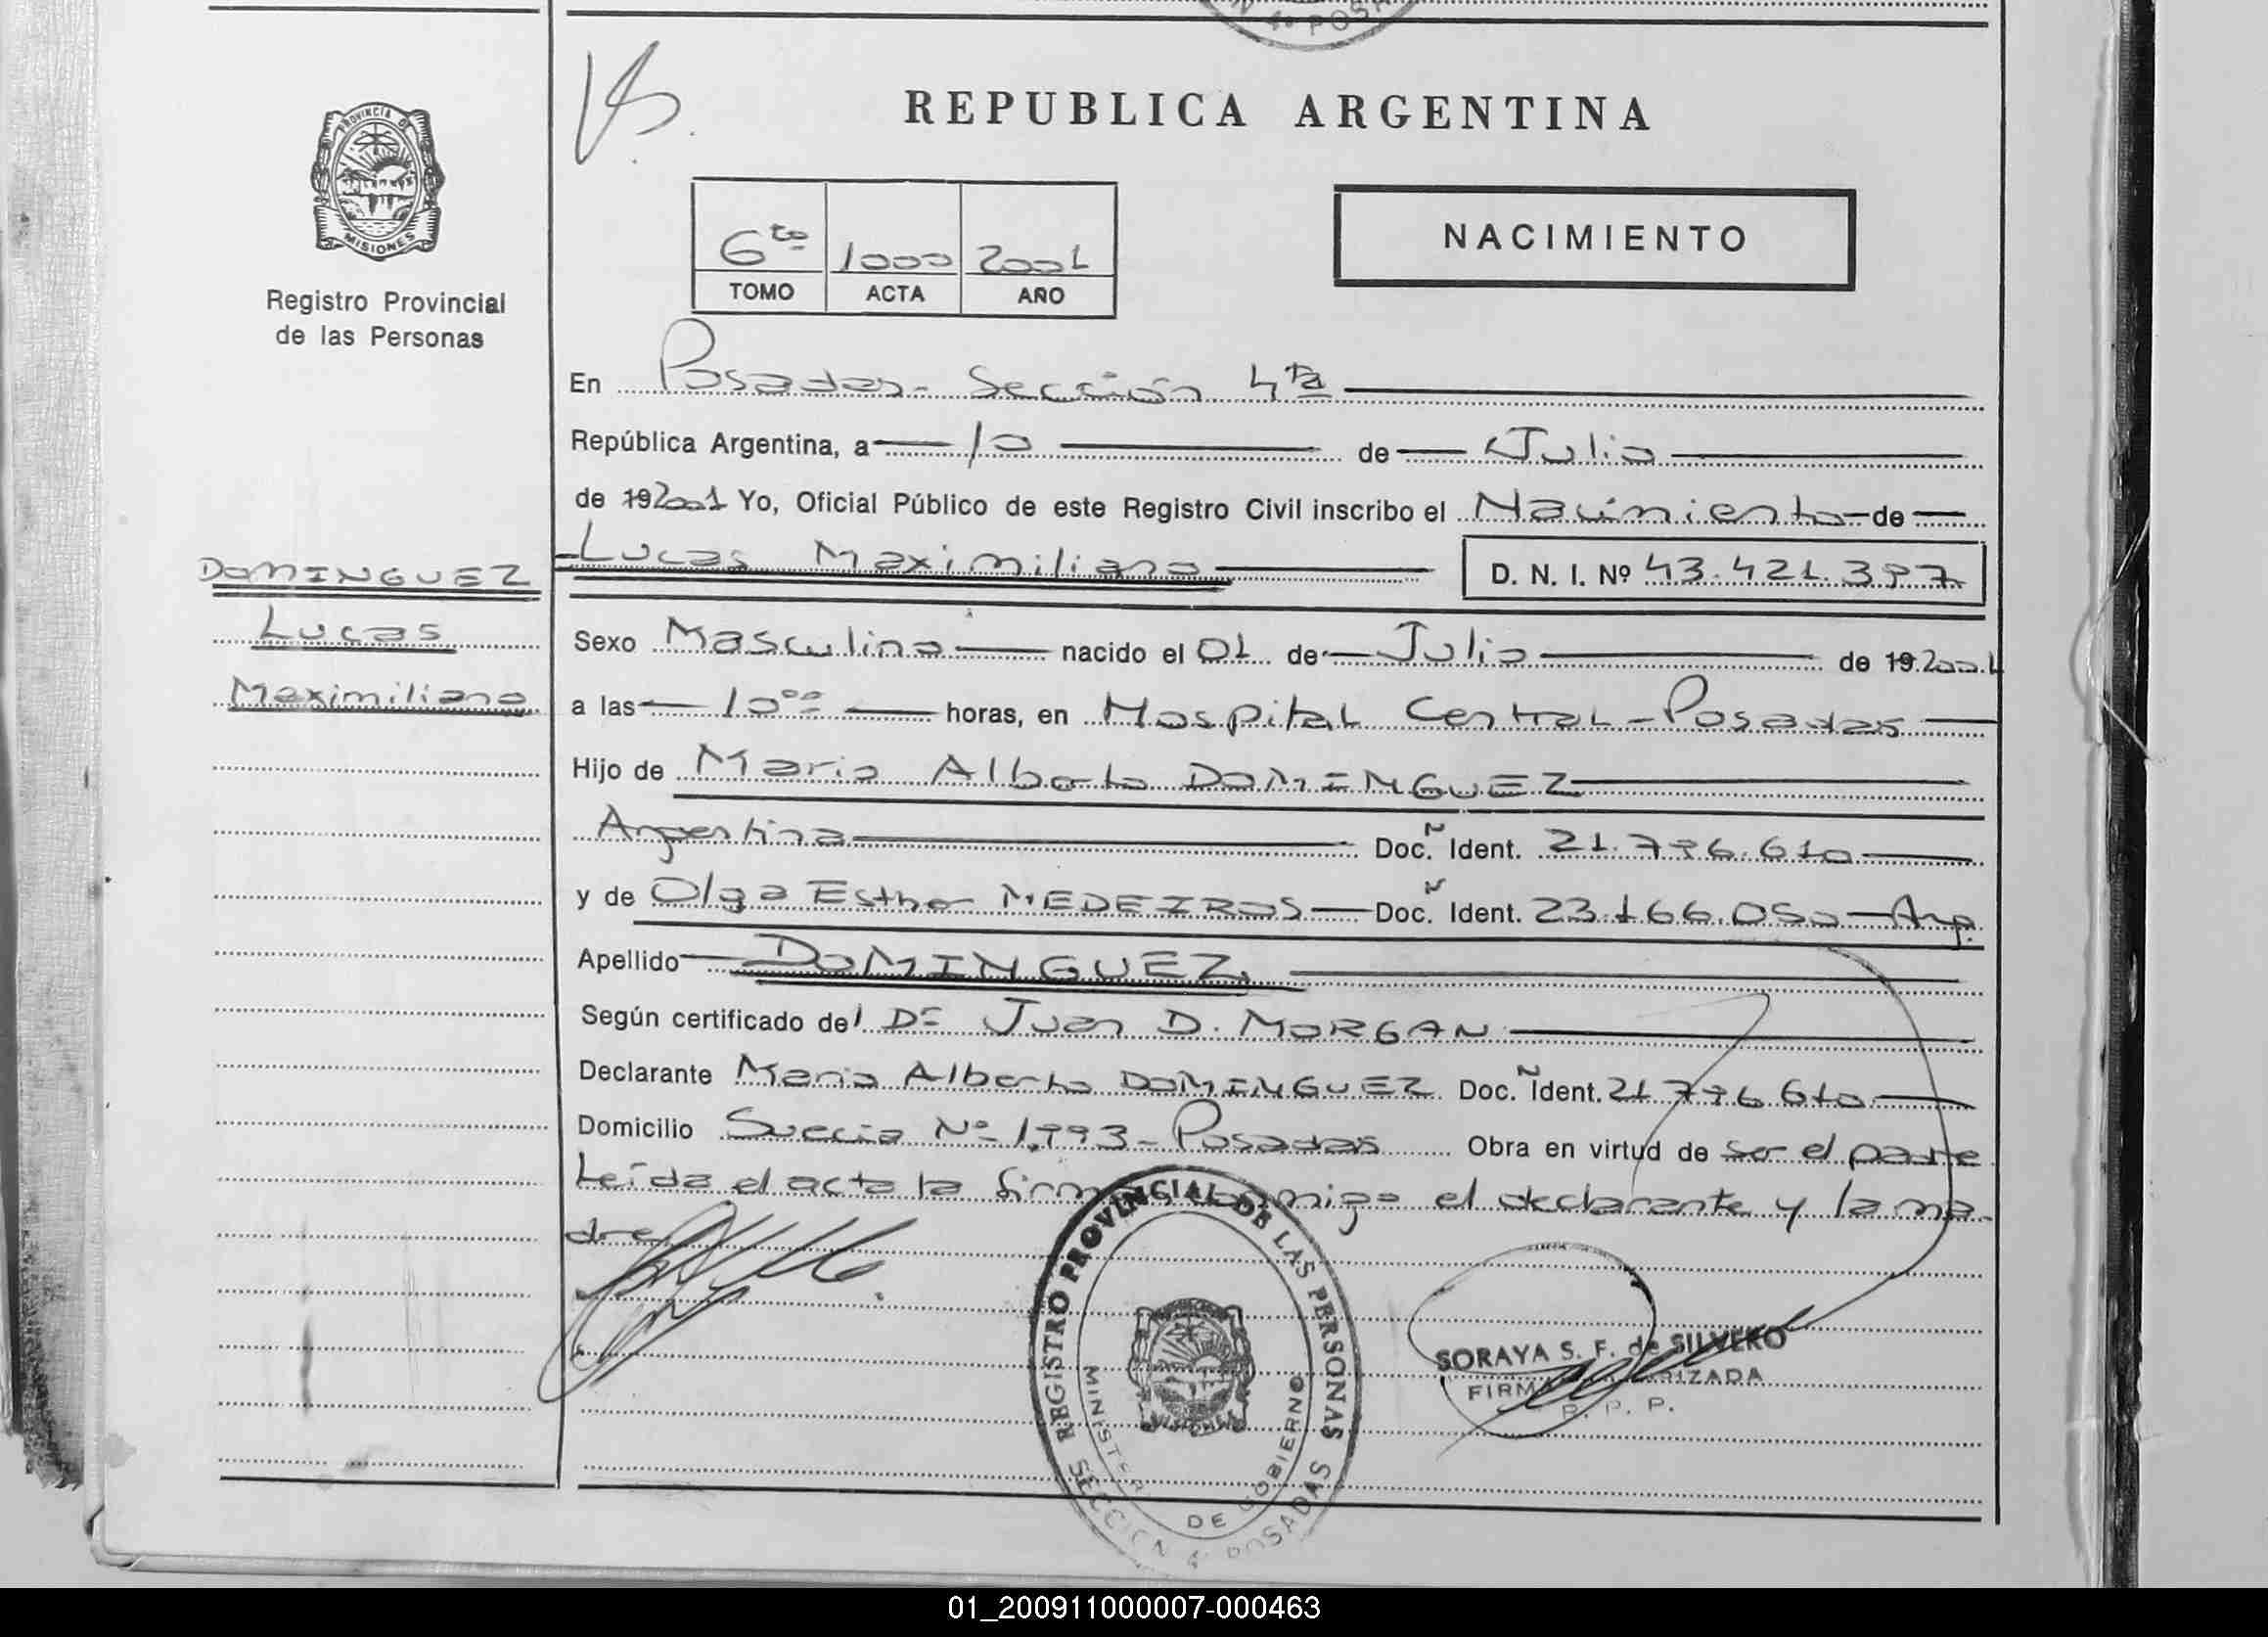 Nº POSA
REPUBLICA ARGENTINA
PROVINCIA DE
MISIONES
Registro Provincial
de las Personas
6to 1000 2001
TOMO ACTA AÑO
NACIMIENTO
En Posadas - Sección 4ta
República Argentina, a 10 de Julio
de 192001 Yo, Oficial Público de este Registro Civil inscribo el Nacimiento de
Lucas Maximiliano D. N. I. Nº 43.421.397
DOMINGUEZ
Lucas
Maximiliano
Sexo Masculino nacido el 01 de Julio de 19 2001
a las 10 00 horas, en Hospital Central - Posadas
Hijo de Mario Alberto DOMINGUEZ
Argentina Doc. Ident. 21.796.610
y de Olga Esther MEDEIROS Doc. Ident. 23.166.050 - Arg.
Apellido DOMINGUEZ
Según certificado del Dr Juan D. MORGAN
Declarante Mario Alberto DOMINGUEZ Doc. Ident. 21 796 610
Domicilio Suecia Nº 1.993 - Posadas Obra en virtud de ser el padre
Leída el acta la firma conmigo el declarante y la ma-
dre
REGISTRO PROVINCIAL DE LAS PERSONAS
MINISTERIO DE GOBIERNO
SECCION 4 POSADAS
MISIONES
SORAYA S. F. de SILVERO
FIRMA AUTORIZADA
R. P. P.
01_200911000007-000463